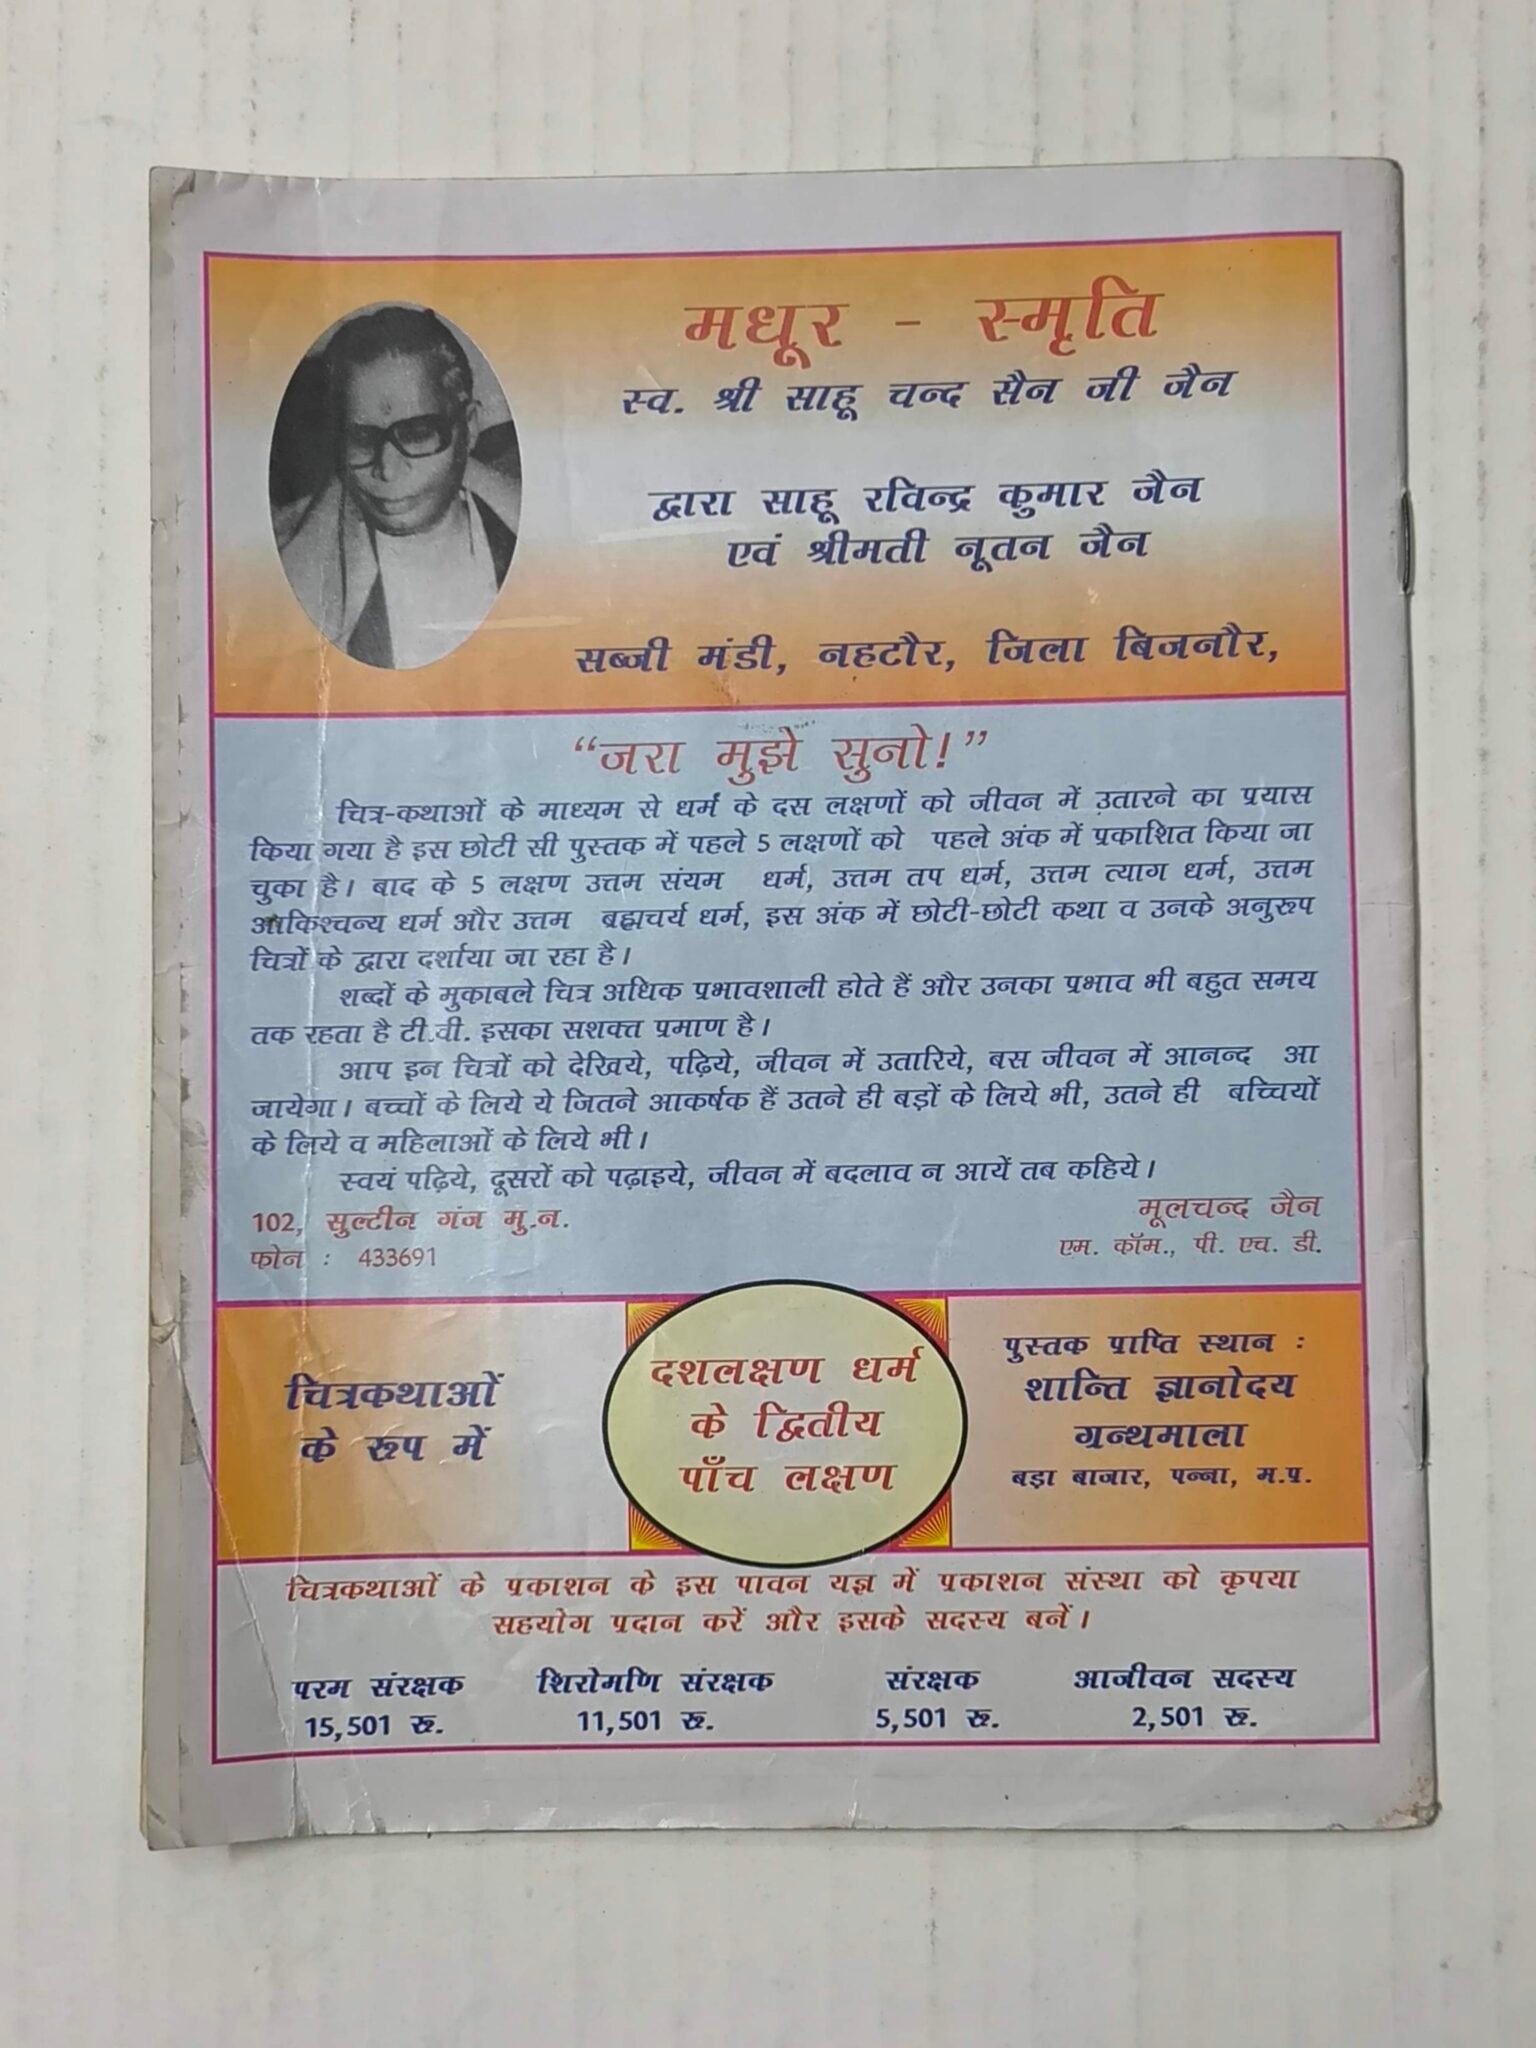 मधूर - स्मृति
स्व. श्री साहू चन्द सैन जी जैन
द्वारा साहू रविन्द्र कुमार जैन
एवं श्रीमती नूतन जैन
सब्जी मंडी, नहटौर, जिला बिजनौर,
“जरा मुझे सुनो!”
चित्र-कथाओं के माध्यम से धर्म के दस लक्षणों को जीवन में उतारने का प्रयास
किया गया है इस छोटी सी पुस्तक में पहले 5 लक्षणों को पहले अंक में प्रकाशित किया जा
चुका है। बाद के 5 लक्षण उत्तम संयम धर्म, उत्तम तप धर्म, उत्तम त्याग धर्म, उत्तम
आकिश्चन्य धर्म और उत्तम ब्रह्मचर्य धर्म, इस अंक में छोटी-छोटी कथा व उनके अनुरूप
चित्रों के द्वारा दर्शाया जा रहा है।
शब्दों के मुकाबले चित्र अधिक प्रभावशाली होते हैं और उनका प्रभाव भी बहुत समय
तक रहता है टी.वी. इसका सशक्त प्रमाण है।
आप इन चित्रों को देखिये, पढ़िये, जीवन में उतारिये, बस जीवन में आनन्द आ
जायेगा। बच्चों के लिये ये जितने आकर्षक हैं उतने ही बड़ों के लिये भी, उतने ही बच्चियों
के लिये व महिलाओं के लिये भी।
स्वयं पढ़िये, दूसरों को पढ़ाइये, जीवन में बदलाव न आयें तब कहिये।
102, सुल्टीन गंज मु.न.
फोन : 433691
मूलचन्द जैन
एम. कॉम., पी. एच. डी.
चित्रकथाओं
के रूप में
दशलक्षण धर्म
के द्वितीय
पाँच लक्षण
पुस्तक प्राप्ति स्थान :
शान्ति ज्ञानोदय
ग्रन्थमाला
बड़ा बाजार, पन्ना, म.प्र.
चित्रकथाओं के प्रकाशन के इस पावन यज्ञ में प्रकाशन संस्था को कृपया
सहयोग प्रदान करें और इसके सदस्य बनें।
परम संरक्षक शिरोमणि संरक्षक संरक्षक आजीवन सदस्य
15,501 रू. 11,501 रू. 5,501 रू. 2,501 रू.